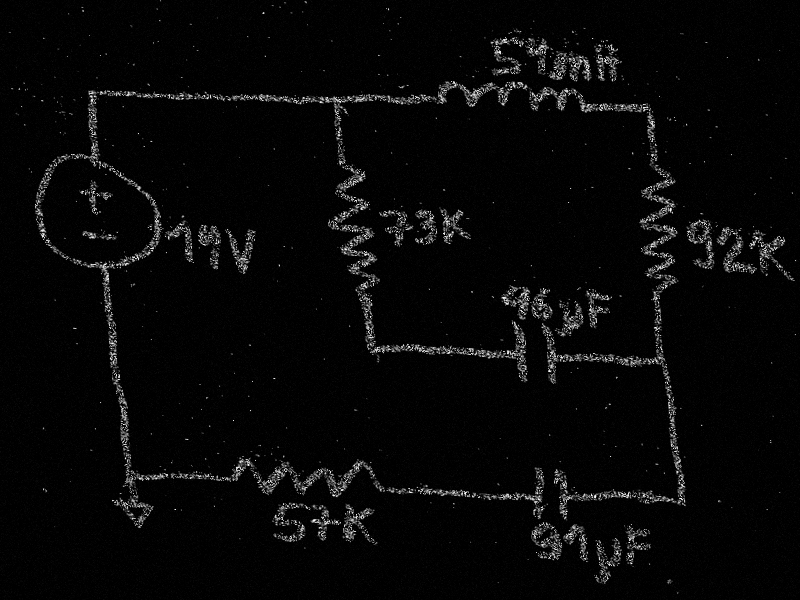 54mH
+
-
19V
73K
92K
96µF
57K
91µF